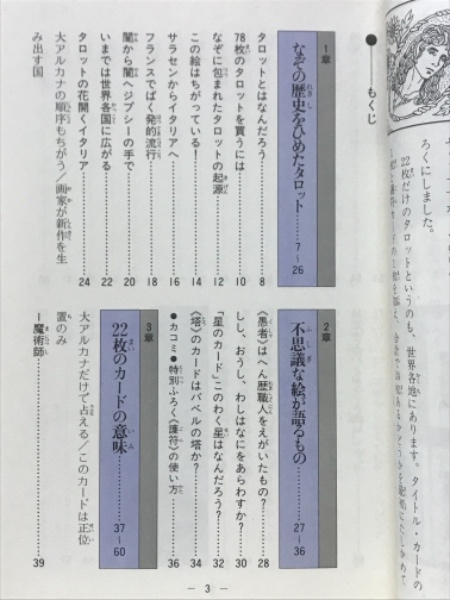 ろくにしました。
22枚だけのタロットというのも、世界各地にあります。タイトル・カードの
●——もくじ
1章
なぞの歴史をひめたタロット………7～26
タロットとはなんだろう………8
78枚のタロットを買うには………10
なぞに包まれたタロットの起源………12
この絵はちがっている！………14
サラセンからイタリアへ………16
フランスでばく発的流行………18
闇から闇へジプシーの手で………20
いまでは世界各国に広がる………22
タロットの花開くイタリア………24
大アルカナの順序もちがう／画家が新作を生
み出す国
2章
不思議な絵が語るもの………27～36
《愚者》はへん歴職人をえがいたもの？………28
しし、おうし、わしはなにをあらわすか？………30
「星のカード」このわく星はなんだろう？………32
《塔》のカードはバベルの塔か？………34
●カコミ●特別ふろく《護符》の使い方………36
3章
22枚のカードの意味………37～60
大アルカナだけで占える／このカードは正位
置のみ
I 魔術師………39
— 3 —